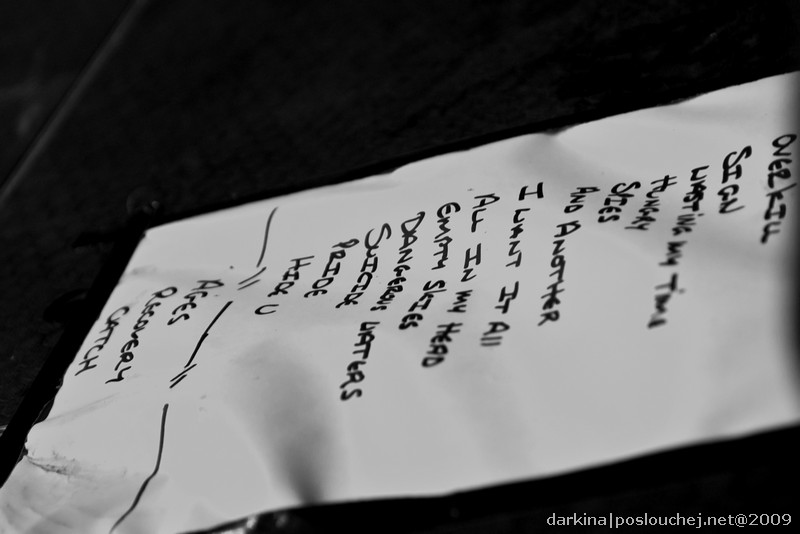 OVERKILL
SIGN
WASTING MY TIME
HUNGRY
AND ANOTHER
I WANT IT All
ALL IN MY HEAD
EMPTY SKIES
DANGEROUS WATERS
SUICIDE
PRIDE
HIDE U
AGES
RECOVERY
CATCH
darkina|poslouchej.net@2009